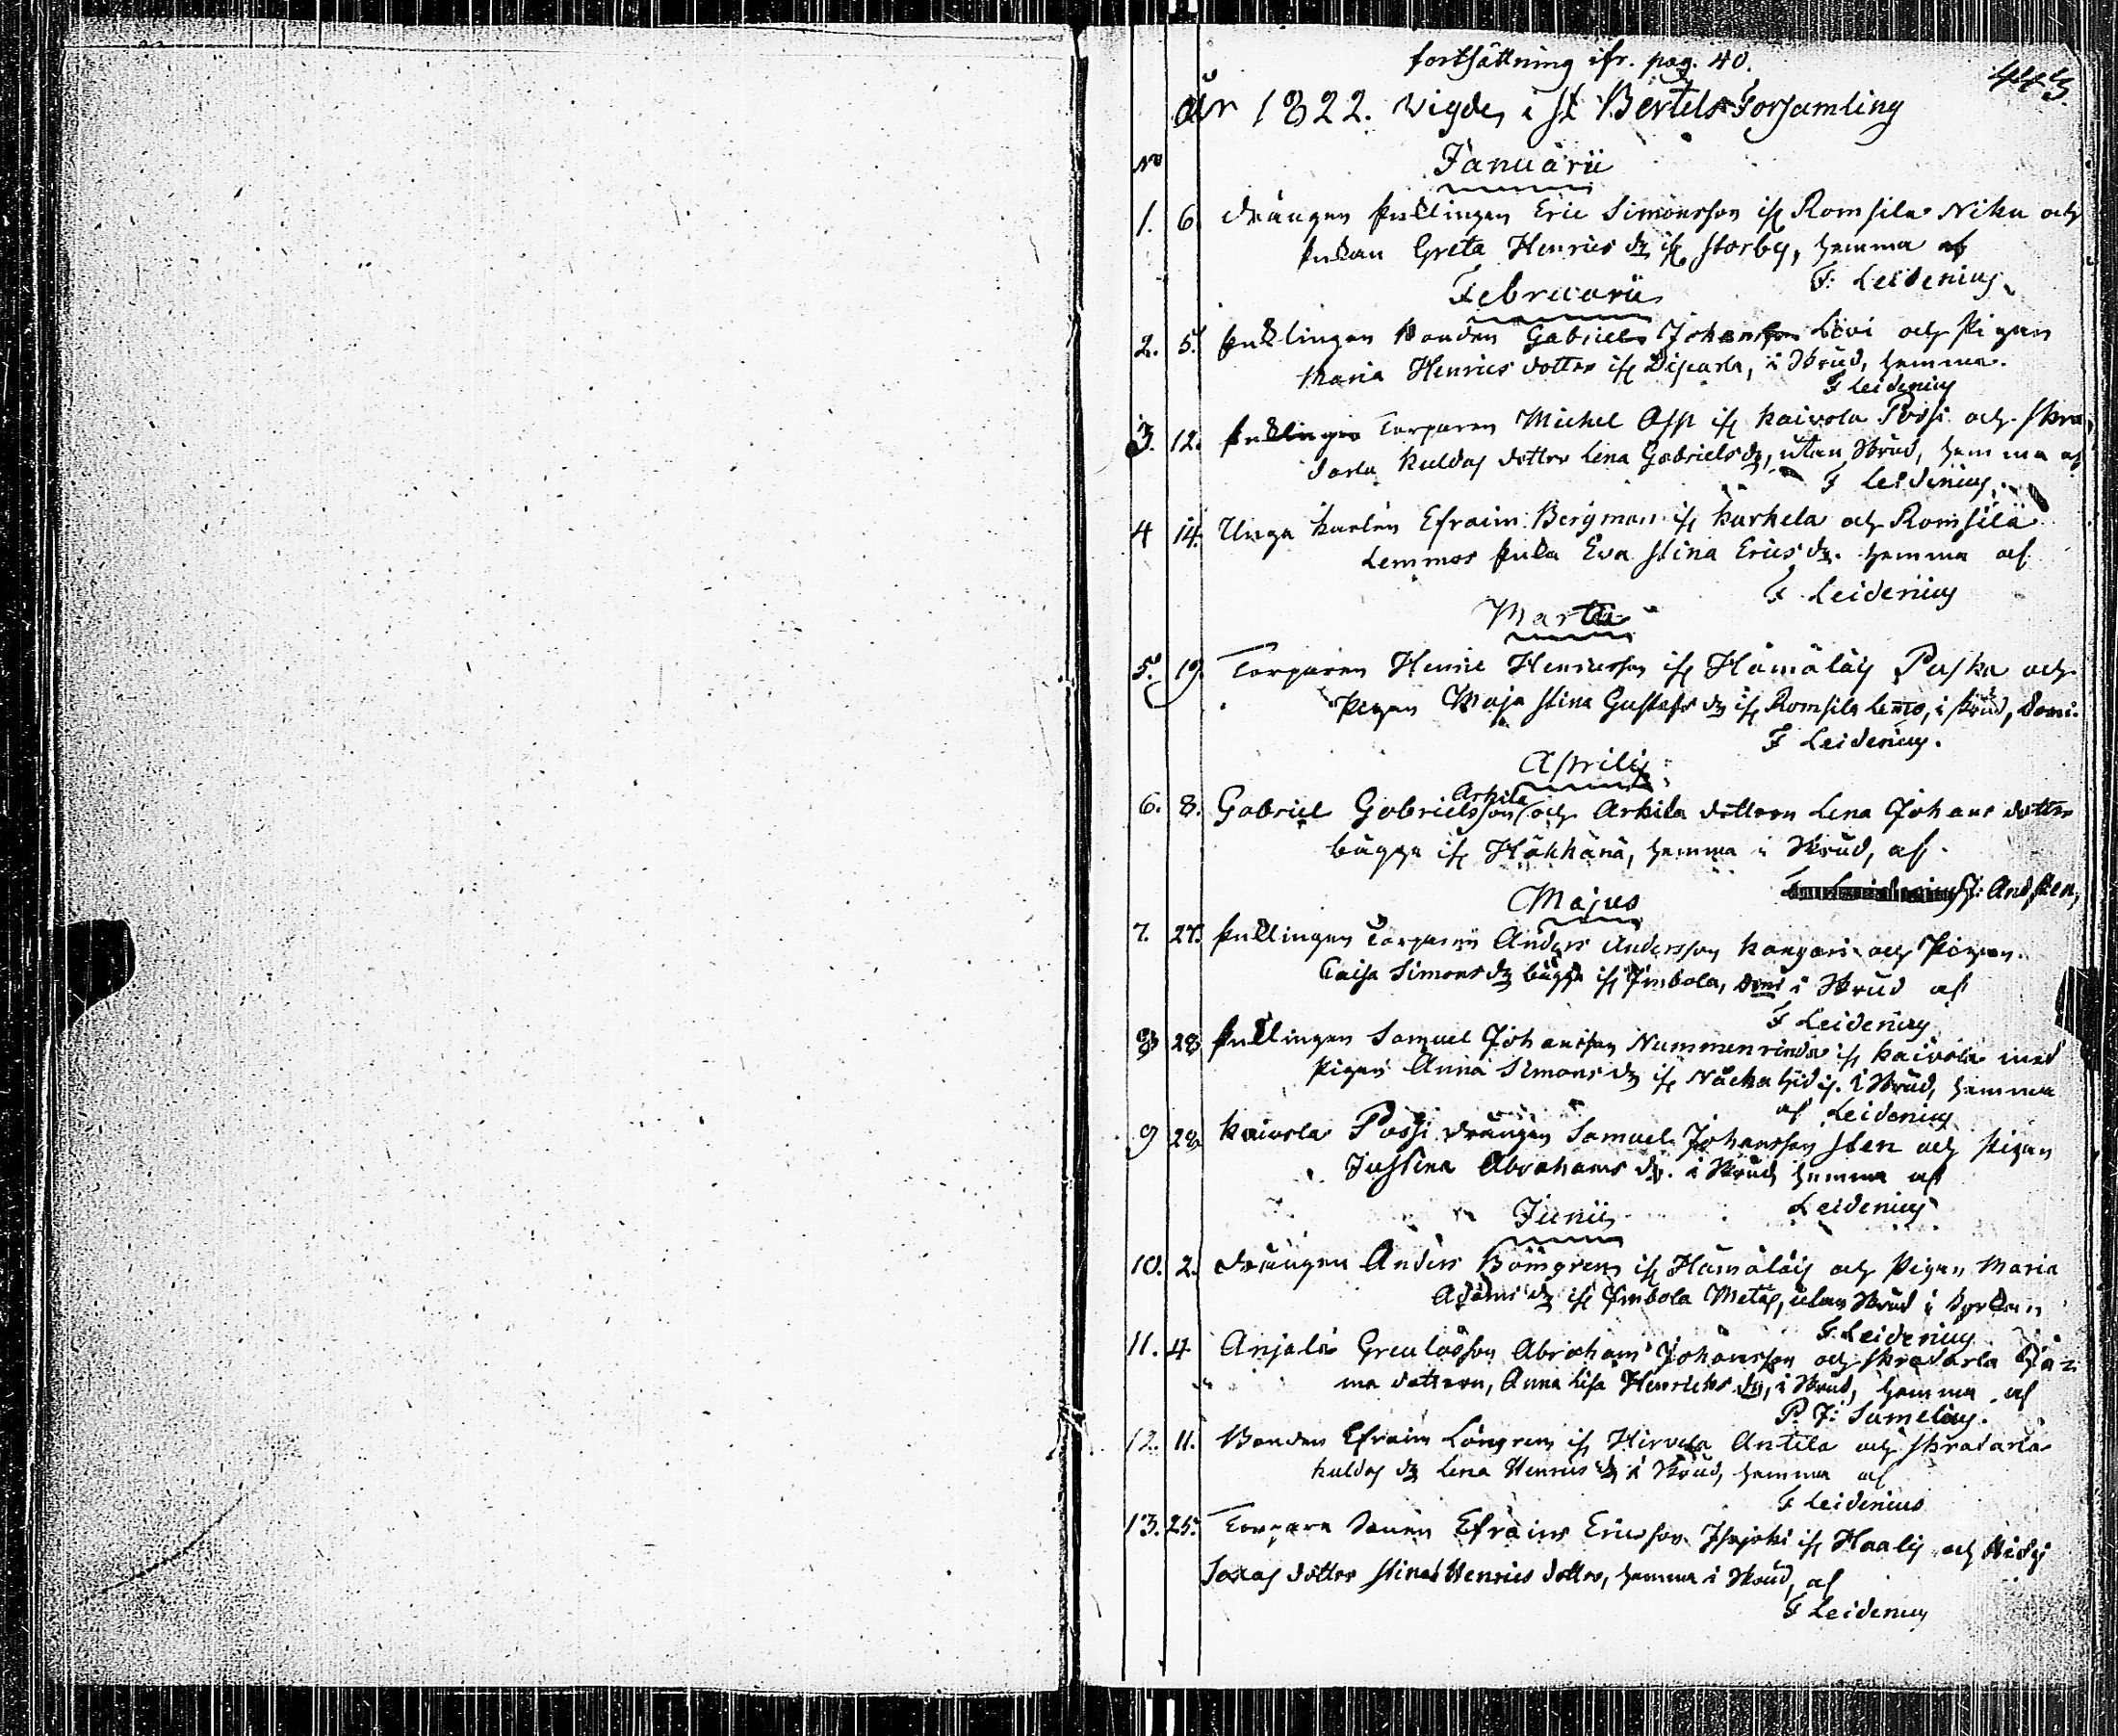 fortsättning ifr. pag. 40.
443.
år 1822. Vigde, i St Bertels Forsamling
No Januarii
1. 6. Drängen Enklingen Eric Simonsson ifr Romsila Niku och
Enkan Greta Henrics dr ifr Storby, hemma af
F. Leidenius
Februarii
2. 5. Enklingen Bonden Gabriel Johansson Livi och Pigan
Maria Henrics dotter ifr Disearla, i Skrud, hemma.
F Leidenius
3. 12. Enklingen Torparen Michel Asp ifr Kaivola Possi och Skra
darla Kuldas dotter Lena Gabriels dr, utan Skrud, hemma af
F Leidenius
4 14. Unga Karlen Efraim Bergman ifr Karhela och Romsila
Lemmos Enka Eva Stina Erics dr. hemma af
F Leidenius
Martii
5. 19. Torparen Henric Henricsson ifr Hämäläis Paska och
Pigan Maja Stina Gustafs dr ifr Romsila Lemo, i Skrud, domi.
F Leidenius.
Aprilis
6. 8. Gabriel Gabrielsson Arkila och Arkila dottern Lena Johans dotter
bägge ifr Häkhänä, hemma i Skrud, af
F: Andsten,
Majus
7. 27. Enklingen Torparen Anders Andersson Kangari och Pigan
Caisa Simons dr bägge ifr Jmbola, domi i Skrud af
F Leidenius
8 28 Enklingen Samuel Johansson Nummenrinda ifr Kaivola med
Pigan Anna Simons dr ifr Näckahidis. i Skrud, hemma
af Leidenius
9 28 Kaivola Possi Drängen Samuel Johansson Sten och Pigan
Justina Abrahams dr. i Skrud hemma af
Leidenius
Junii
10. 2. Drängen Anders Bömgren ifr Hämäläis och Pigan Maria
Adams dr ifr Jmbola Metas, utan Skrud i Kyrkan
F. Leidenius
11. 4 Anjala Greulasson Abraham Johansson och Skradarla Jä=
ma dottern, Anna Lisa Henrichs dr, i Skrud, hemma af
P. J: Sumelius.
12. 11. Bonden Efraim Löngren ifr Hirvela Antila och Skradarla
Kuldas dr Lena Henrics dr i Skrud, hemma af
F Leidenius
13. 25. Torpare Sonen Efraim Ericsson Isajoki ifr Haalis och Hidis
Saxas dotter Stina Henrics dotter, hemma i Skrud, af
F Leidenius